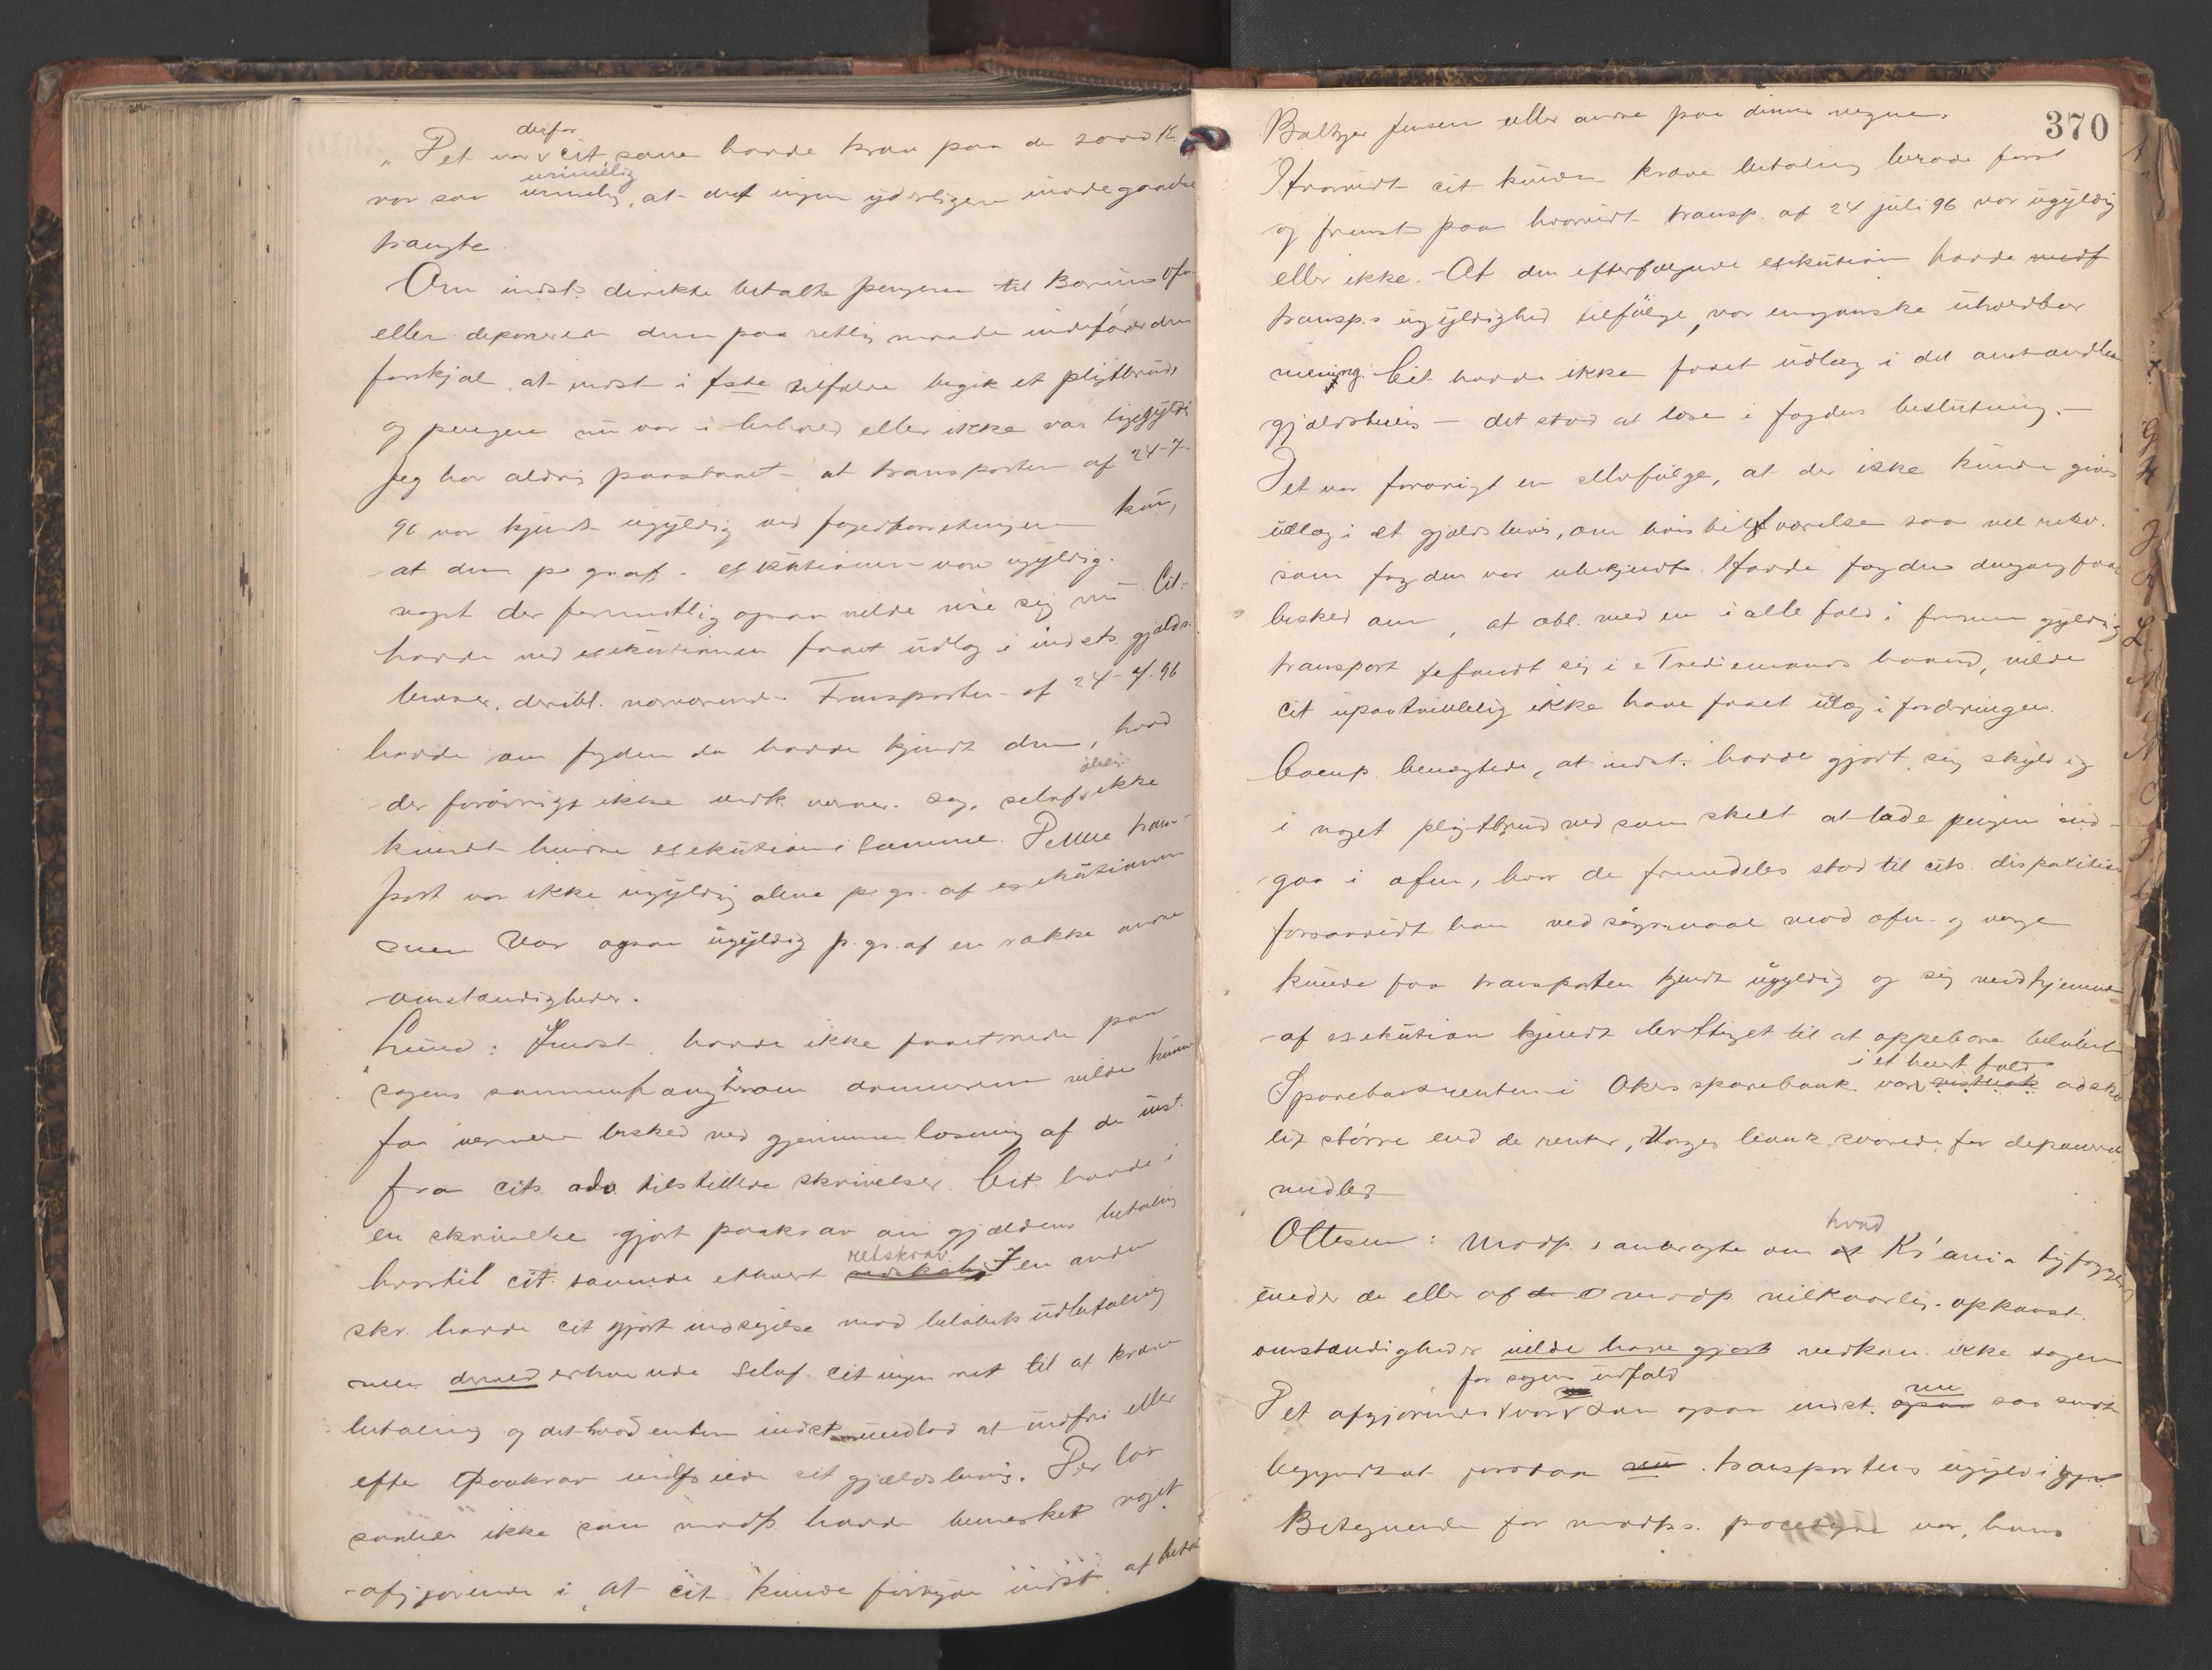 derfor
„Det var cit. som havde krav paa de 2000 K.
urimelig
var saa urimelig, at det ingen yderligere imødegaaelse
trængte.
Om indst. direkte betalte pengene til Borum ofu.
eller deponerede dem paa retlig maade indeførde den
forskjel at indst i første tilfælde begik et pligtbrud
og pengene nu var i behold eller ikke var ligegyldig
Jeg har aldrig paastaaet at transporten af 24-7-
96 var kjendt ugyldig ved fogedforretningen kun,
at den p. gr. af exekutionen var ugyldig.
noget der formentlig ogsaa vilde vise sig nu. Cit.
havde ved exekutionen faaet udlæg i indsts gjælds-
beviser, deribl. nærværende. Transporten af 24-7-96
havde om fogden da havde kjendt den, hvad
der forøvrigt ikke vedk. nærvær. sag, selvf. ikke
kundt hindre exekution i samme. Denne trans-
port var ikke ugyldig alene p. gr. af exekutionen
men var ogsaa ugyldig p. gr. af en række andre
omstændigheder.
Lund: Indst. havde ikke faaet rede paa
sagens sammenhæng hvorom dommeren vilde kunne
faa nærmere besked ved gjennemlæsning af de indst.
fra cits adv. tilstillede skrivelser. Cit. havde i
en skrivelse gjort paakrav om gjældens betaling
retskrav
hvortil cit. savnede ethvert I en anden
skr. havde cit gjort indsigelse mod beløbets udbetaling
men dermed erhvervede selvf. cit ingen ret til at kræve
betaling og det hvad enten indst undlod at indfri eller
efter Paakrav indfriede sit gjældsbevis. Der laa
saaledes ikke som modp. havde bemerket noget
afgjørende i, at cit kunde forbyde indst. at betale
370
Baltzer Jensen eller andre paa dennes vegne.
Hvorvidt cit kunde kræve betaling beroede først
og fremst paa hvorvidt transp. af 24 juli 96 var ugyldig
eller ikke. At den efterfølgende exekution havde medf
transp.s ugyldighed tilfølge, var en ganske uholdbar
mening. Cit havde ikke faaet udlæg i det omhandlede
gjældsbevis — det stod at læse i fogdens beslutning. —
Det var forøvrigt en selvfølge, at der ikke kunde gives
udlæg i et gjældsbevis, om hvis tilværelse saa vel rekv.
som fogden var ubekjendt. Havde fogden dengang faaet
besked om, at obl. med en i alle fald i formen gyldig
transport befandt sig i Trediemands haand, vilde
cit upaatvivlelig ikke have faaet udlæg i fordringen.
Comp. benægtede, at indst. havde gjort sig skyldig
i noget pligtbrud ved som skeet at lade pengene ind-
gaa i ofm, hvor de fremdeles stod til cits. disposition
forsaavidt han ved søgsmaal mod ofm og værge
kunde faa transporten kjendt ugyldig og sig ved hjemmel
af exekution kjendt berettiget til at oppebære beløbet.
i et hvert fald
Sparebankrenten i Akers sparebank var adskil
lig større end de renter, Norges bank svarede for deponerede
midler
hvad
Ottesen: Modp.s anbragte om at Kr'ania byfoged
under de eller af de modp. vilkaarlig opkonst.
omstændigheder vilde have gjort vedkom. ikke sagen
for sagens udfald
nu
Det afgjørende var som ogsaa indst. ogsaa saa smaat
begyndte at forstaa nu transportens ugyldighed
Betegnende for modps. procedure var, hans